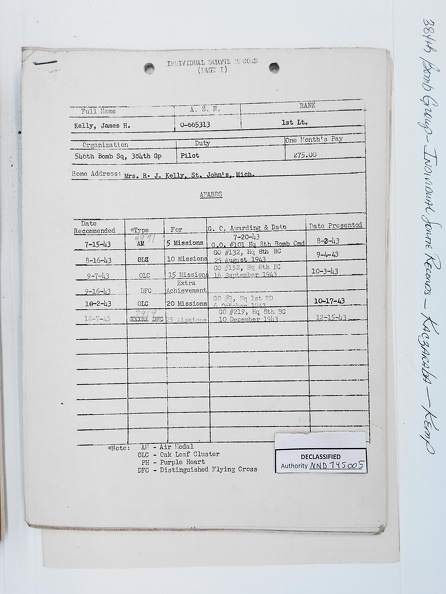 INDIVIDUAL SORTIE RECORD
(PAGE I)
Full Name A. S. N. RANK
Kelly, James H. 0-665313 1st Lt.
Organization Duty One Month's Pay
546th Bomb Sq, 384th Gp Pilot 275.00
Home Address: Mrs. R. J. Kelly, St. John's, Mich.
AWARDS
Date Recommended *Type For G. O. Awarding & Date Date Presented
7-15-43 AM 5 Missions 7-20-43 G.O. #101 Hq 8th Bomb Cmd 8-2-43
8-16-43 10 Missions GO #132, Hq 8th BC 25 August 1943 9-4-43
9-7-43 OLC 15 Missions GO #152, Hq 8th BC 16 September 1943 10-3-43
9-16-43 DFC Extra Achievement
10-2-43 OLC 20 Missions Hq 1st BD 10-17-43
10-7-43 DFC 25 Missions GO #219, Hq 8th BC 10 December 1943 12-15-43
*Note: AM - Air Medal
OLC - Oak Leaf Cluster
PH - Purple Heart
DFC - Distinguished Flying Cross
DECLASSIFIED
Authority NND 745005
384th Bomb Group - Individual Sortie Records - Kaczaraba - Kemp